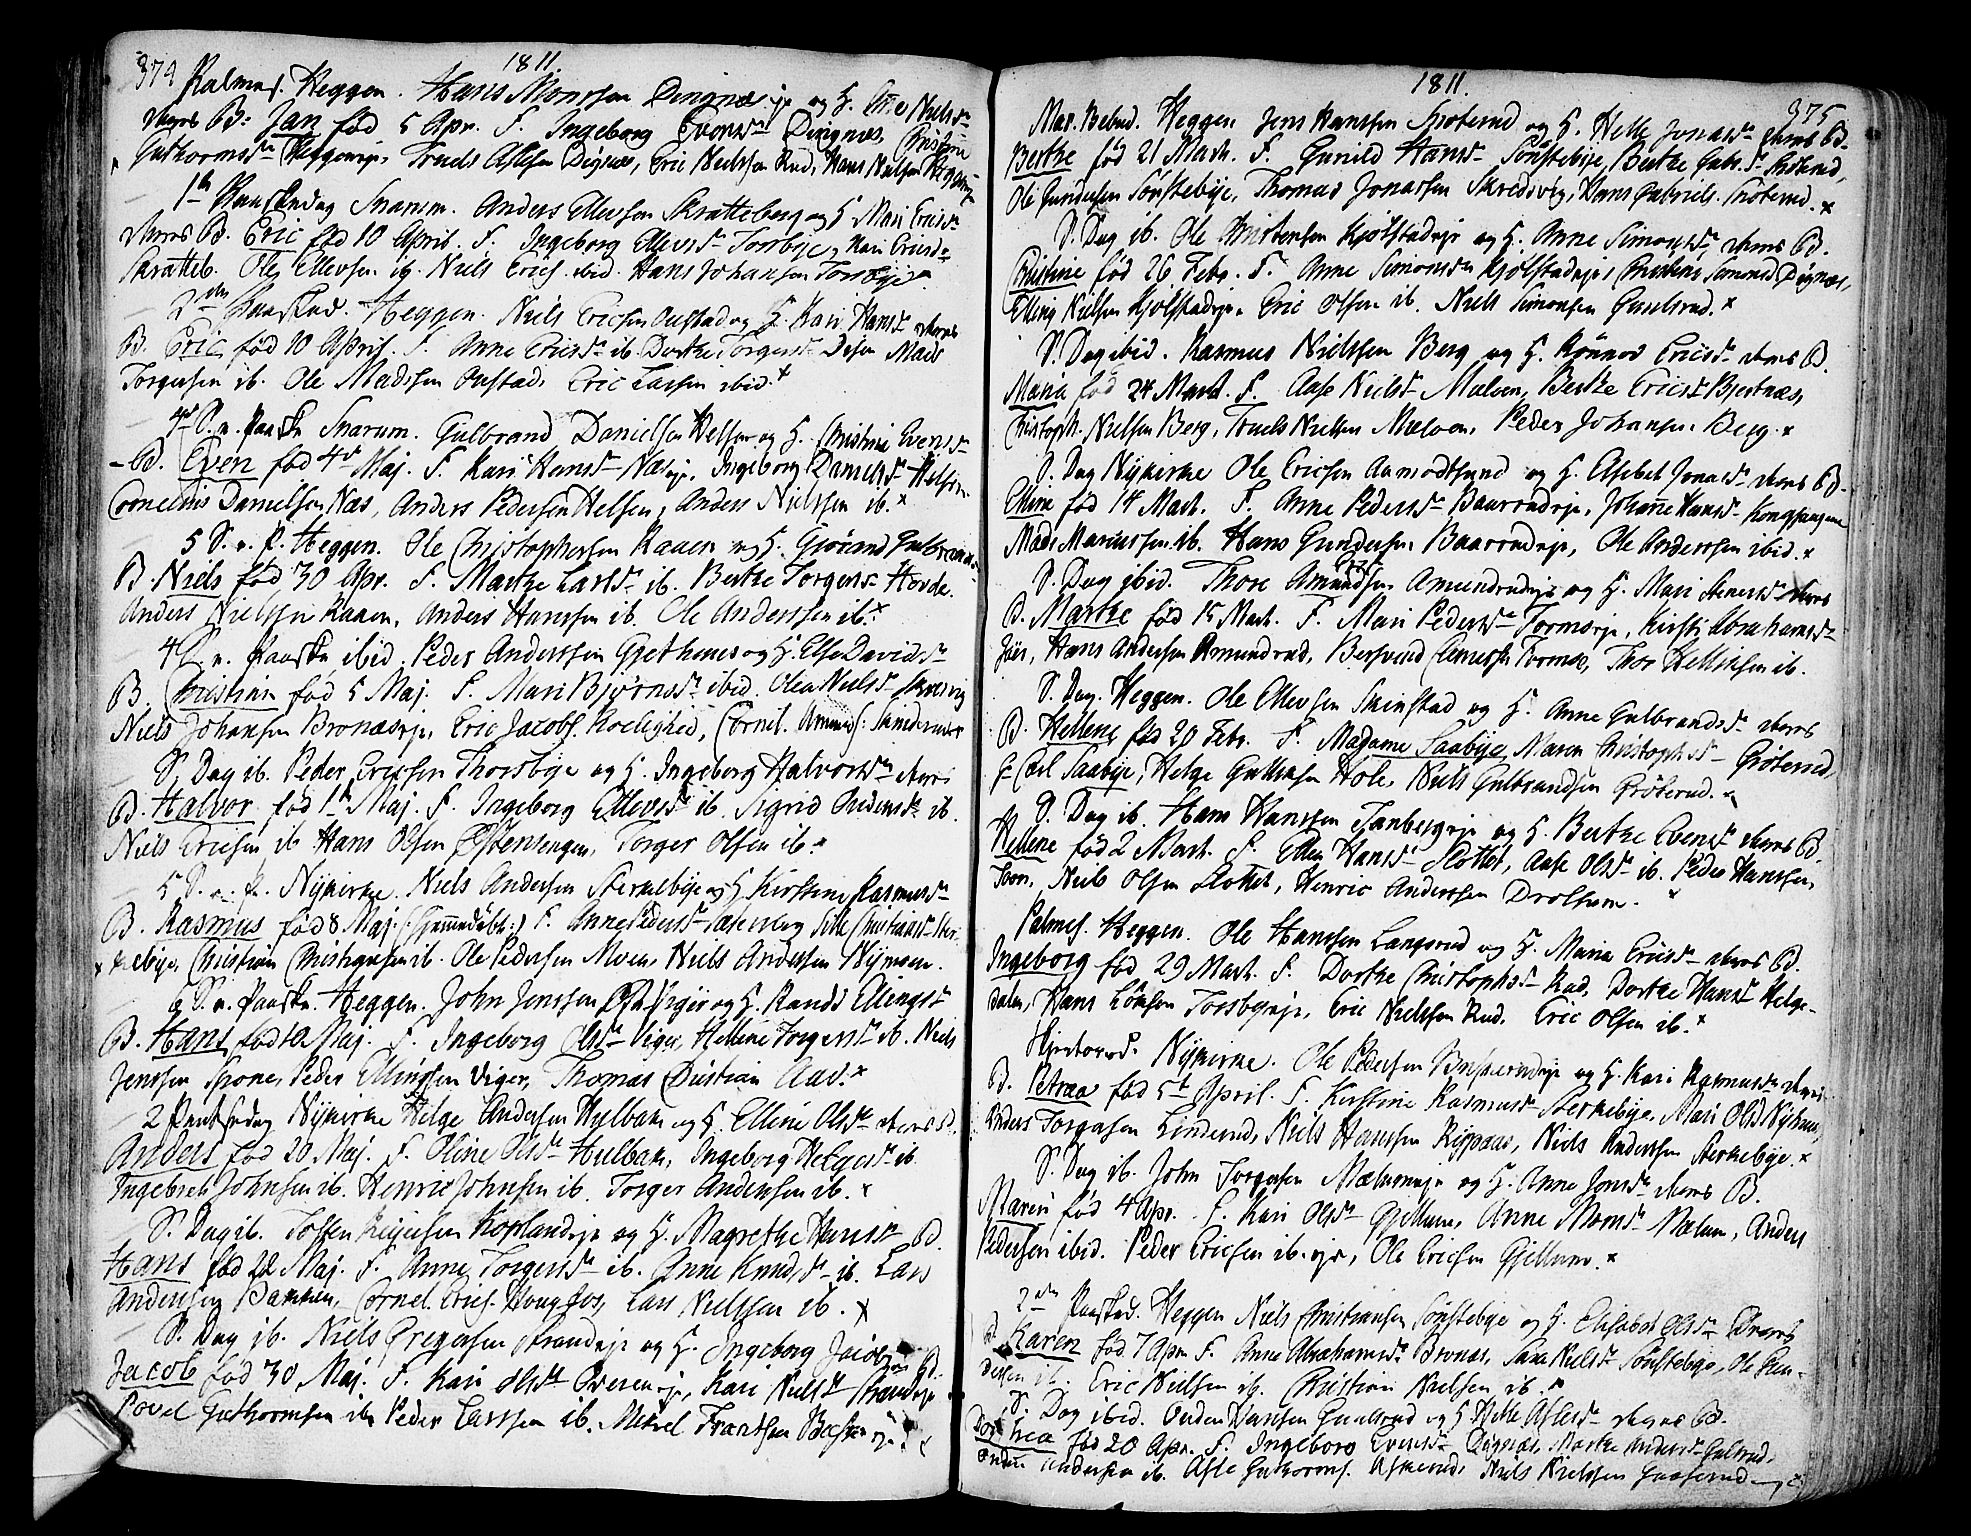 374
1811.
Palmes. Heggen. Hans Monssen Dingnæseje og H. Ane Nielsdr
theres B: Jan fød 5 Apr. F. Ingeborg Dingnæs,
Guthormsdr Heggeneje, Truels Aslesen Dignæs, Eric Nielssen Rud, Hans Nielsen
1ste Paaskedag Snarum. Anders Ellevsen Skratteberg og H Mari Ericsdr
theres B. Eric fød 10 April. F. Ingeborg Ellevsdr Torsbye, Kari Ericsdr
Skratteb. Ole Ellevsen ib. Niels Erics. ibid. Hans Johansen Torsbye.
2den Paaskedag. Heggen. Niels Ericsen Oustad og H. Kari Hansdr theres
B. Eric, fød 10 April. F. Anne Ericsdr ib. Dorthe Torgersdr Mads
Torgersen ib. Ole Madssen Oustad, Eric Larsen ibid. x
4de S. e. Paaske Snarum. Gulbrand Danielsen Helsen og H. Christine Evensdr
B. Even fød 4de Maj. F. Kari Hansdr Næseje, Ingeborg Danielsdr Helsen
Cornelius Danielsen Næs, Anders Pedersen Helsen, Anders Nielssen ib. x
5 S. e. P. Heggen. Ole Christophersen Raaen og H. Gjørand Gulbrands
B. Niels fød 30 Apr. F. Marthe Larsdr ib. Berthe Torgersdr Hovde.
Anders Nielssen Raaen, Anders Hanssen ib. Ole Anderssen ib. x
4 S. e. Paaske ibid. Peder Anderssen Gjethuus og H. Else Davidsdr
B. Christian fød 5 Maj. F. Mari Bjørnsdr ibid. Olea Nielsdr
Niels Johansen Bronæseje, Eric Jacobs. Roelighed, Cornel. Amunds.
S. Dag ib. Peder Ericsen Thorsbye og H. Ingeborg Halvorsdr theres
B. Halvor, fød 1ste Maj. F. Ingeborg Ellevsdr ib. Sigrid ib.
Niels Ericsen ib Hans Olsen Østensengen, Torger Olsen ib. x
5 S. e. P. Nykirke. Niels Andersen Sterkebye og H Kirstine Rasmusdr
B. Rasmus fød 8 Maj. (:Hjemmedøbt:) F. Anne Pedersdr Sille Christiansdr Ster-
kebye, Christian Christiansen ib. Ole Pedersen Moen, Niels Andersen Nymoen.
6 S. e. Paaske. Heggen. John Jenssen Viger og H. Randi Ellingsdr
B. Hans fød 12 Maj. F. Ingeborg Olsdr Viger, Hellene Torgersdr ib. Niels
Jenssen Spone, Peder Ellingssen Viger, Thomas Christian Aas. x
2 Pintsedag Nykirke Helge Andersen Hulbak og H. Elline Olsdr theres B.
Anders fød 20 Maj. F. Oline Olsdr Hulbak, Ingeborg Helgesdr ib.
Ingebret Johnsen ib. Henric Johnsen ib. Torger Andersen ib. x
S. Dag ib. Kopland eje og H. Magrethe Hansdr B.
Hans fød 22 Maj. F. Anne Torgersdr ib. Anne Knudsdr ib. Lars
Andersen Bakken, Cornel. Erics. Hougfos, Lars Nielssen ib. x
S. Dag ib. Niels Gregersen Strandeje og H. Ingeborg Jacobs B.
Jacob fød 30 Maj. F. Kari Olsdr Overeneje, Kari Nielsdr Strandeje
Povel Guthormsen ib. Peder Larssen ib. Mikel Frantsen
1811.
375
Mar. Bebud. Heggen Jens Hanssen Grøterud og H. Helle Jonasdr theres B.
Berthe fød 21 Mart. F. Gunild Hansdr Sønstebye, Berthe Gabr.dr Grøterud,
Ole Gundersen Sønstebye, Thomas Jonassen Skredsvig, Hans Gabriels. Grøterud. x
S. Dag ib. Ole Christensen Kjølstadeje og H. Anne Simonsdr, theres B.
Christine fød 26 Febr. F. Anne Simonsdr Kjølstadeje, Christine Simonsd Dignæs,
Elling Nielsen Kjølstadeje. Eric Olsen ib. Niels Simonsen Gunelsrud. x
S. Dag ibid. Rasmus Nielssen Berg og H. Rønnov Ericsdr theres B.
Maria fød 24 Mart. F. Aase Nielsdr Moloen, Berthe Ericsdr Bjertnæs,
Christoph. Nielsen Berg, Truels Nielsen Moloen, Peder Johansen Berg. x
S. Dag Nykirke Ole Ericsen Aamodtsund og H. Elsebet Jonasdr theres B.
Elline fød 14 Mart. F. Anne Pedersdr Baarrudeje, Johanne Hansdr
Mads Mariussen ib. Hans Gundersen Baarrudeje, Ole Anderssen ibid. x
S. Dag ibid. Thore Amundsen Amundrudeje og H. Mari Stenersdr theres
B. Marthe fød 15 Mart. F. Mari Pedersdr Tormoeje, Kirsti Abrahamsdr
Hans Andersen Amundrud, Bersvend Clemetsen Tormoe, Thor Hellinsen ib.
S. Dag. Heggen. Ole Ellevsen Skinstad og H. Anne Gulbrandsdr theres
B. Hellene fød 20 Febr. F. Madame Saabye, Maren Christophsdr Grøterud,
Hr Carl Saabye, Helge Gulliksen Hole, Niels Gulbrandsen Grøterud.
S. Dag ib. Hans Hanssen Tanbergeje og H. Berthe Evensdr theres B.
Hellene fød 2 Mart. F. Ellen Hansdr Slottet, Aase Olsdr ib. Peder Hanssen
Toen, Niels Olsen Slottet, Henric Anderssen Drolsum. x
Palmes. Heggen. Ole Hanssen Langerud og H. Maria Ericsdr theres B.
Ingeborg fød 29 Mart. F. Dorthe Christophsdr Rud, Dorthe Hansdr Helge-
dalen, Hans Torsbyeeje, Eric Nielssen Rud. Eric Olsen ib. x
Skjertorsd. Nykirke. Ole Pedersen Buskerudeje og H. Kari Rasmusdr theres
B. Petrea fød 5te April. F. Kirstine Rasmusdr Sterkebye, Mari Olsd Nyhuus,
Anders Torgersen Linderud, Niels Hanssen Rypaas, Niels Anderssen Sterkebye. x
S. Dag ib. John Torgersen Mælumeje og H. Anne Jonsdr theres B.
Maren fød 4 Apr. F. Kari Olsdr Gjellum, Anne Monsdr Mælum, Anders
Pedersen ibid. Peder Ericsen ib. eje, Ole Ericsen Gjellum. x
2den Paasked. Heggen Niels Christiansen Sønstebye og H. Elisabet Olsdr theres
B. Karen fød 7 Apr. F. Anne Abrahamsdr Bronæs, Sara Nielsdr Sønstebye, Ole Gun-
dersen ib. Eric Nielsen ib. Christian Nielsen ib. x
S. Dag ibid. Hanssen Gunelsrud og H Helle Aslesdr theres B.
Dorthea fød 20 Apr. F. Ingeborg Evensdr Dignæs, Marthe Andersdr Gulsrud,
Andersen ib. Asle Guthorms. Askerud, Niels Nielssen